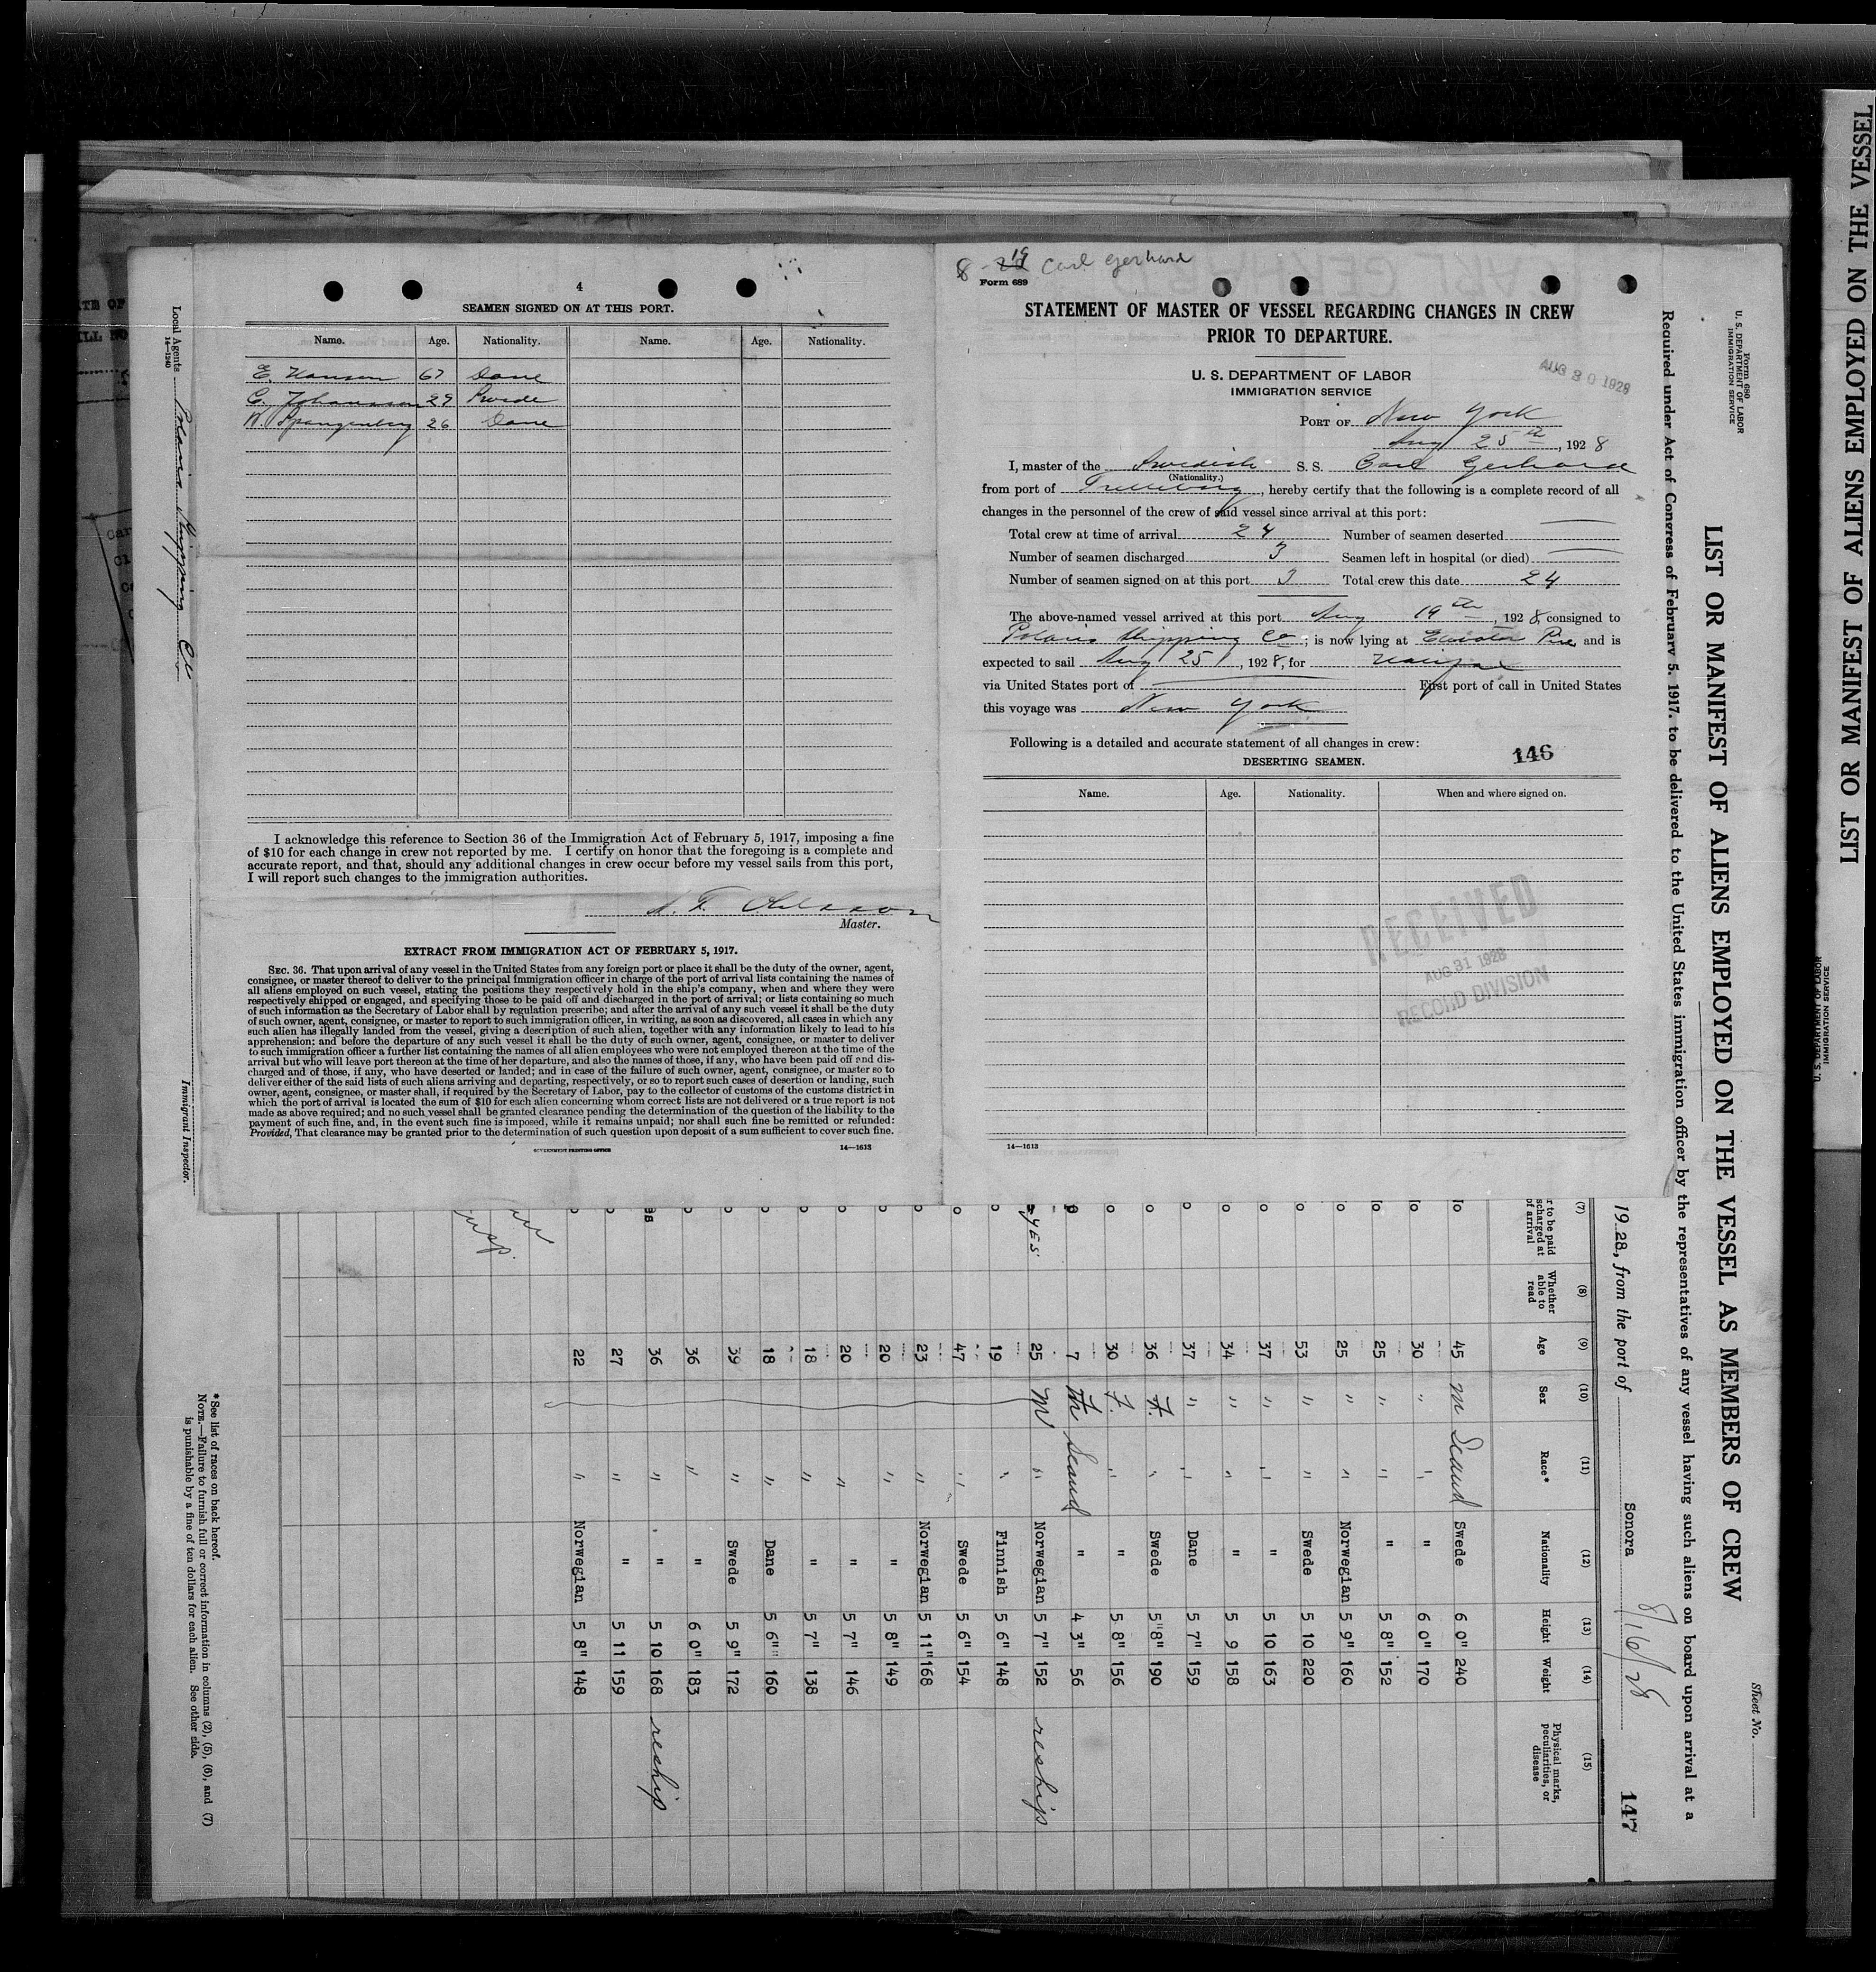 4
SEAMEN SIGNED ON AT THIS PORT.
Name. Age. Nationality. Name. Age. Nationality.
E. Hansen 67 Dane
C. Johansson 29 Swede
W. Spangenberg 26 Dane
I acknowledge this reference to Section 36 of the Immigration Act of February 5, 1917, imposing a fine
of $10 for each change in crew not reported by me. I certify on honor that the foregoing is a complete and
accurate report, and that, should any additional changes in crew occur before my vessel sails from this port,
I will report such changes to the immigration authorities.
Master.
EXTRACT FROM IMMIGRATION ACT OF FEBRUARY 5, 1917.
SEC. 36. That upon arrival of any vessel in the United States from any foreign port or place it shall be the duty of the owner, agent,
consignee, or master thereof to deliver to the principal immigration officer in charge of the port of arrival lists containing the names of
all aliens employed on such vessel, stating the positions they respectively hold in the ship's company, when and where they were
respectively shipped or engaged, and specifying those to be paid off and discharged in the port of arrival; or lists containing so much
of such information as the Secretary of Labor shall by regulation prescribe; and after the arrival of any such vessel it shall be the duty
of such owner, agent, consignee, or master to report to such immigration officer, in writing, as soon as discovered, all cases in which any
such alien has illegally landed from the vessel, giving a description of such alien, together with any information likely to lead to his
apprehension; and before the departure of any such vessel it shall be the duty of such owner, agent, consignee, or master to deliver
to such immigration officer a further list containing the names of all alien employees who were not employed thereon at the time of the
arrival but who will leave port thereon at the time of her departure, and also the names of those, if any, who have been paid off and dis-
charged and of those, if any, who have deserted or landed; and in case of the failure of such owner, agent, consignee, or master so to
deliver either of the said lists of such aliens arriving and departing, respectively, or so to report such cases of desertion or landing, such
owner, agent, consignee, or master shall, if required by the Secretary of Labor, pay to the collector of customs of the customs district in
which the port of arrival is located the sum of $10 for each alien concerning whom correct lists are not delivered or a true report is not
made as above required; and no such vessel shall be granted clearance pending the determination of the question of the liability to the
payment of such fine, and, in the event such fine is imposed, while it remains unpaid; nor shall such fine be remitted or refunded:
Provided, That clearance may be granted prior to the determination of such question upon deposit of a sum sufficient to cover such fine.
GOVERNMENT PRINTING OFFICE 14—1613
8 - 19 Carl Gerhard
Form 689
STATEMENT OF MASTER OF VESSEL REGARDING CHANGES IN CREW
PRIOR TO DEPARTURE.
U. S. DEPARTMENT OF LABOR
IMMIGRATION SERVICE
AUG 30 1928
PORT OF New York
Aug 25th, 1928
I, master of the Swedish S. S. Carl Gerhard
(Nationality.)
from port of Trelleborg, hereby certify that the following is a complete record of all
changes in the personnel of the crew of said vessel since arrival at this port:
Total crew at time of arrival 24 Number of seamen deserted
Number of seamen discharged 3 Seamen left in hospital (or died)
Number of seamen signed on at this port 3 Total crew this date 24
The above-named vessel arrived at this port Aug 19th, 1928, consigned to
Polaris Shipping Co; is now lying at and is
expected to sail Aug 25, 1928, for
via United States port of First port of call in United States
this voyage was New York
Following is a detailed and accurate statement of all changes in crew:
146
DESERTING SEAMEN.
Name. Age. Nationality. When and where signed on.
RECEIVED
AUG 31 1928
RECORD DIVISION
14—1613
Local Agents Polaris Shipping Co
14—1240
Immigrant Inspector.
Form 680
U. S. DEPARTMENT OF LABOR
IMMIGRATION SERVICE
Sheet No.
LIST OR MANIFEST OF ALIENS EMPLOYED ON THE VESSEL AS MEMBERS OF CREW
Required under Act of Congress of February 5, 1917, to be delivered to the United States immigration officer by the representatives of any vessel having such aliens on board upon arrival at a
1928, from the port of Sonora 8/16/28 147
(7) (8) (9) (10) (11) (12) (13) (14) (15)
r to be paid scharged at of arrival Whether able to read Age Sex Race* Nationality Height Weight Physical marks, peculiarities, or disease
lo 45 m Scand Swede 6 0" 240
lo 30 " " " 6 0" 170
lo 25 " " " 5 8" 152
o 25 " " Norwegian 5 9" 160
o 53 " " Swede 5 10 220
o 37 " " " 5 10 163
o 34 " " " 5 9 158
o 37 " " Dane 5 7" 159
o 36 F. " Swede 5 8" 190
o 30 F. " " 5 8" 156
7 Scand " 4 3" 56
YES 25 M " Norwegian 5 7" 152 reship
o 19 " Finnish 5 6" 148
o 47 " Swede 5 6" 154
o 23 " Norwegian 5 11" 168
o 20 " " 5 8" 149
o 20 " " 5 7" 146
o 18 " " 5 7" 138
o 18 " Dane 5 6" 160
o 39 " Swede 5 9" 172
o 36 " " 6 0" 183
36 " " 5 10 168 reship
o 27 " " 5 11 159
o 22 " Norwegian 5 8" 148
*See list of races on back hereof.
NOTE.—Failure to furnish full or correct information in columns (2), (5), (6), and (7)
is punishable by a fine of ten dollars for each alien. See other side.
LIST OR MANIFEST OF ALIENS EMPLOYED ON THE VESSEL
U. S. DEPARTMENT OF LABOR
IMMIGRATION SERVICE